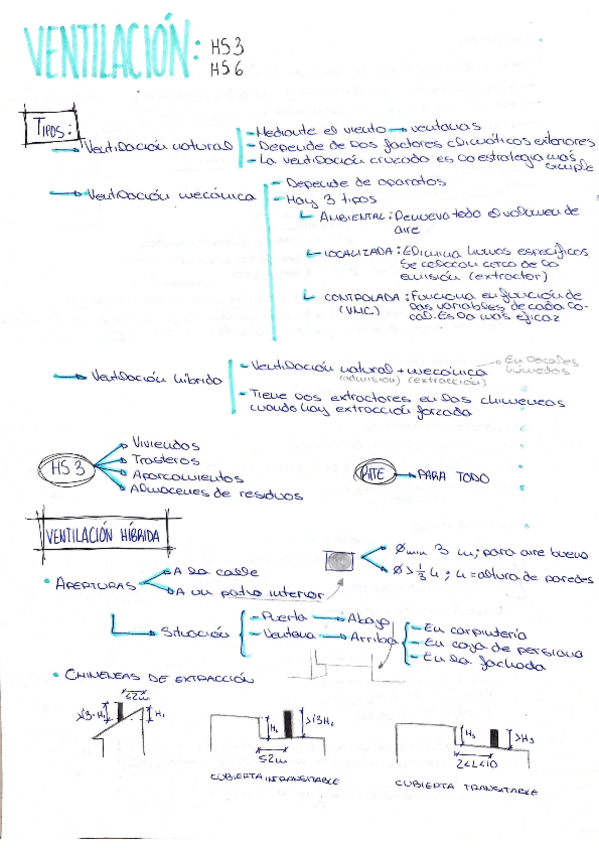 VENTILACIÓN: HS3
HS6
TIPOS:
Ventilación natural
- Mediante el viento → ventanas
- Depende de los factores climáticos exteriores
- La ventilación cruzada es la estrategia más simple
Ventilación mecánica
- Depende de aparatos
- Hay 3 tipos
AMBIENTAL: Renueva todo el volumen de aire
LOCALIZADA: Elimina humos específicos
Se colocan cerca de la
emisión (extractor)
CONTROLADA: Funciona en función de
(VMC) las variables de cada lo-
cal. Es la más eficaz
Ventilación híbrida
- Ventilación natural + mecánica
(admisión) (extracción)
En locales
húmedos
- Tiene los extractores en las chimeneas
cuando hay extracción forzada
HS3
Viviendas
Trasteros
Aparcamientos
Almacenes de residuos
RITE → PARA TODO
VENTILACIÓN HÍBRIDA
• APERTURAS
A la calle
A un patio interior
Ømin 3 m; para aire bueno
Ø > 1/3 H; H = altura de paredes
Situación
- Puerta → Abajo
- Ventana → Arriba
- En carpintería
- En caja de persiana
- En la fachada
• CHIMENEAS DE EXTRACCIÓN
≤2m
H₁
H₂
>1'3H₂
≤2m
CUBIERTA INTRANSITABLE
H₃
>H₃
2<L<10
CUBIERTA TRANSITABLE